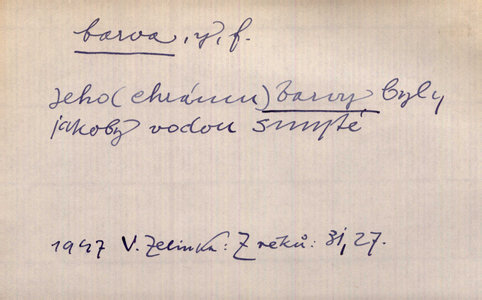 barva, y, f.
Jeho (chrámu) barvy byly
jakoby vodou smyté
1947 V. Zelinka: Z reků: 31, 27.